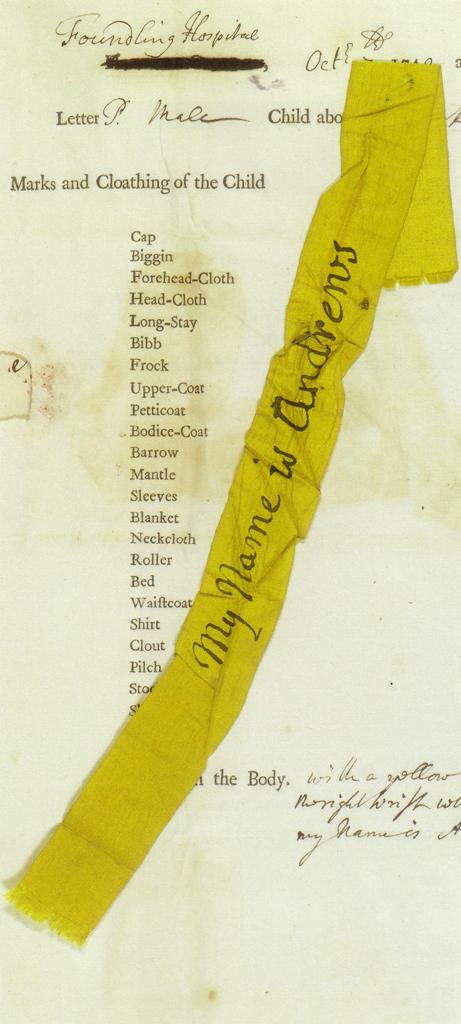 Foundling Hospital
Oct
Letter P. Male Child abo
Marks and Cloathing of the Child
Cap
Biggin
Forehead-Cloth
Head-Cloth
Long-Stay
Bibb
Frock
Upper-Coat
Petticoat
Bodice-Coat
Barrow
Mantle
Sleeves
Blanket
Neckcloth
Roller
Bed
Waiſtcoat
Shirt
Clout
Pilch
Sto
My Name is Andrews
the Body. with a yellow
right Wrist
my Name is A